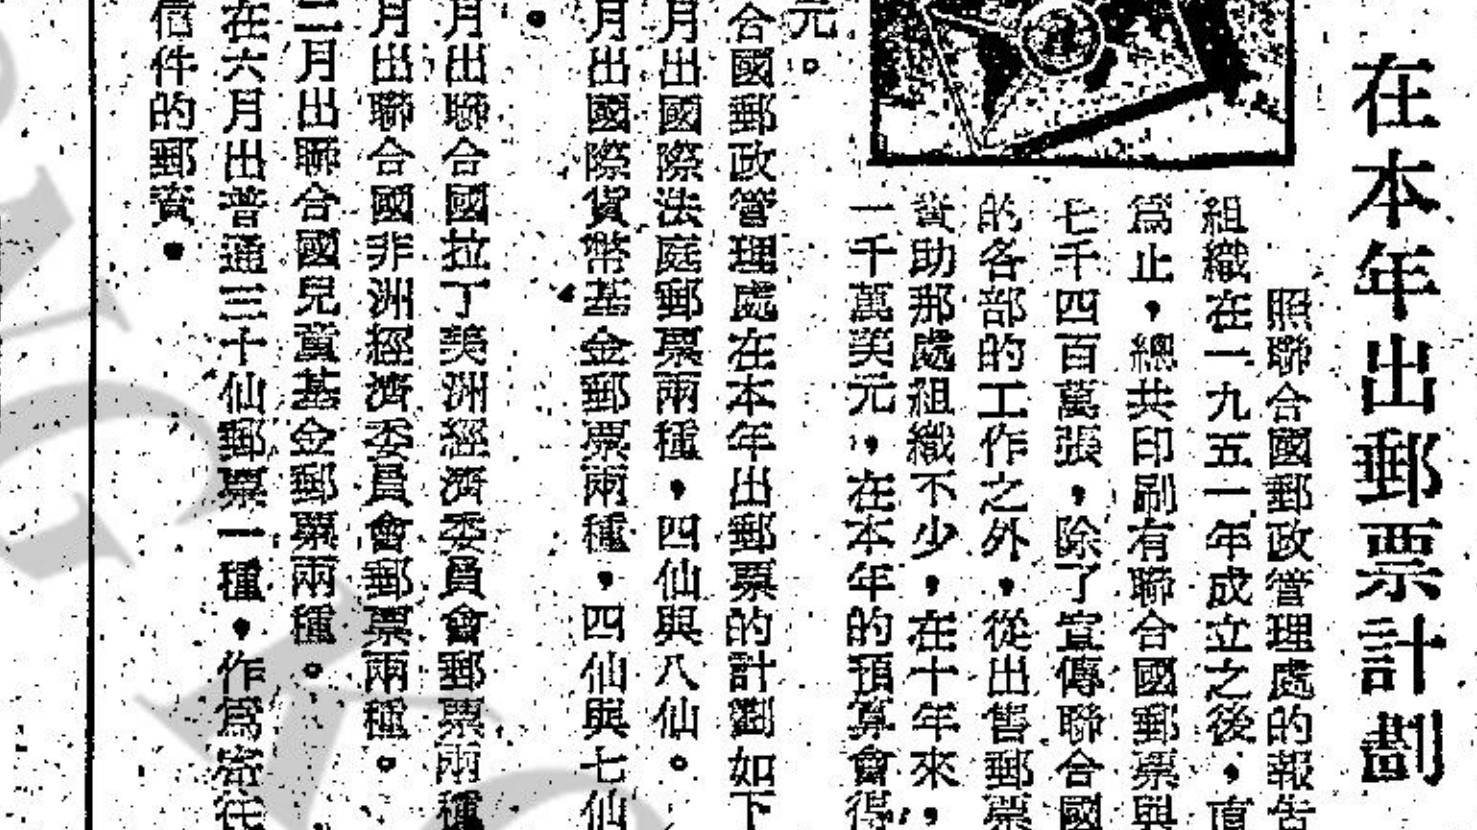 在本年出郵票計劃
照聯合國郵政管理處的報告
組織在一九五一年成立之後，直
爲止，總共印刷有聯合國郵票與
七千四百萬張，除了宣傳聯合國
的各部的工作之外，從出售郵票
資助那處組織不少，在十年來，
一千萬美元，在本年的預算會得
元。
合國郵政管理處在本年出郵票的計劃如下
月出國際法庭郵票兩種，四仙與八仙。
月出國際貨幣基金郵票兩種，四仙與七仙
。
月出聯合國拉丁美洲經濟委員會郵票兩種
月出聯合國非洲經濟委員會郵票兩種。
二月出聯合國兒童基金郵票兩種。
在六月出普通三十仙郵票一種，作爲寄往
信件的郵資。